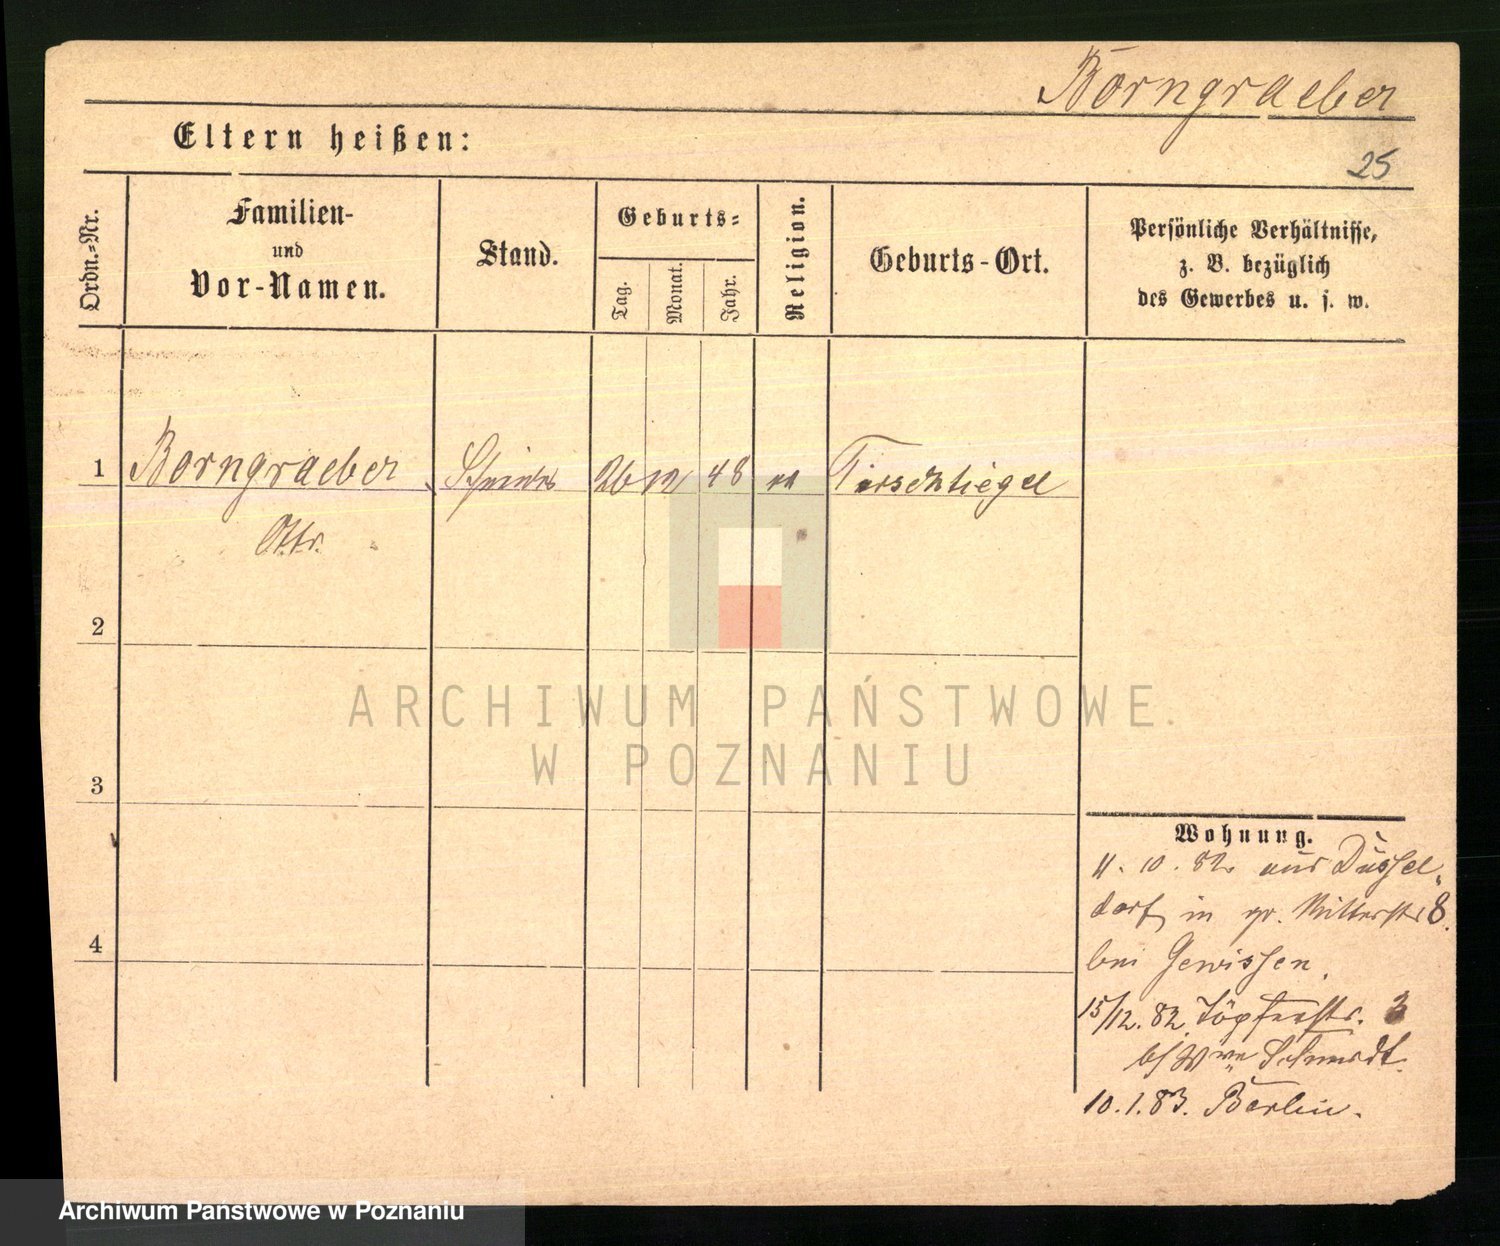 Borngraeber
Eltern heißen:
25
Ordn.-Nr.
Familien-
und
Vor-Namen.
Stand.
Geburts-
Tag.
Monat.
Jahr.
Religion.
Geburts-Ort.
Persönliche Verhältnisse,
z. B. bezüglich
des Gewerbes u. s. w.
1 Borngraeber 26 12 48 Tirschtiegel
Otto.
2
3
4
ARCHIWUM PAŃSTWOWE
W POZNANIU
Wohnung.
11. 10. 82. aus Düssel-
dorf in gr. Ritterstr 8.
bei Gewissen.
15/12. 82. Töpferstr. 3
b/ Wwe Schmidt.
10. 1. 83. Berlin.
Archiwum Państwowe w Poznaniu